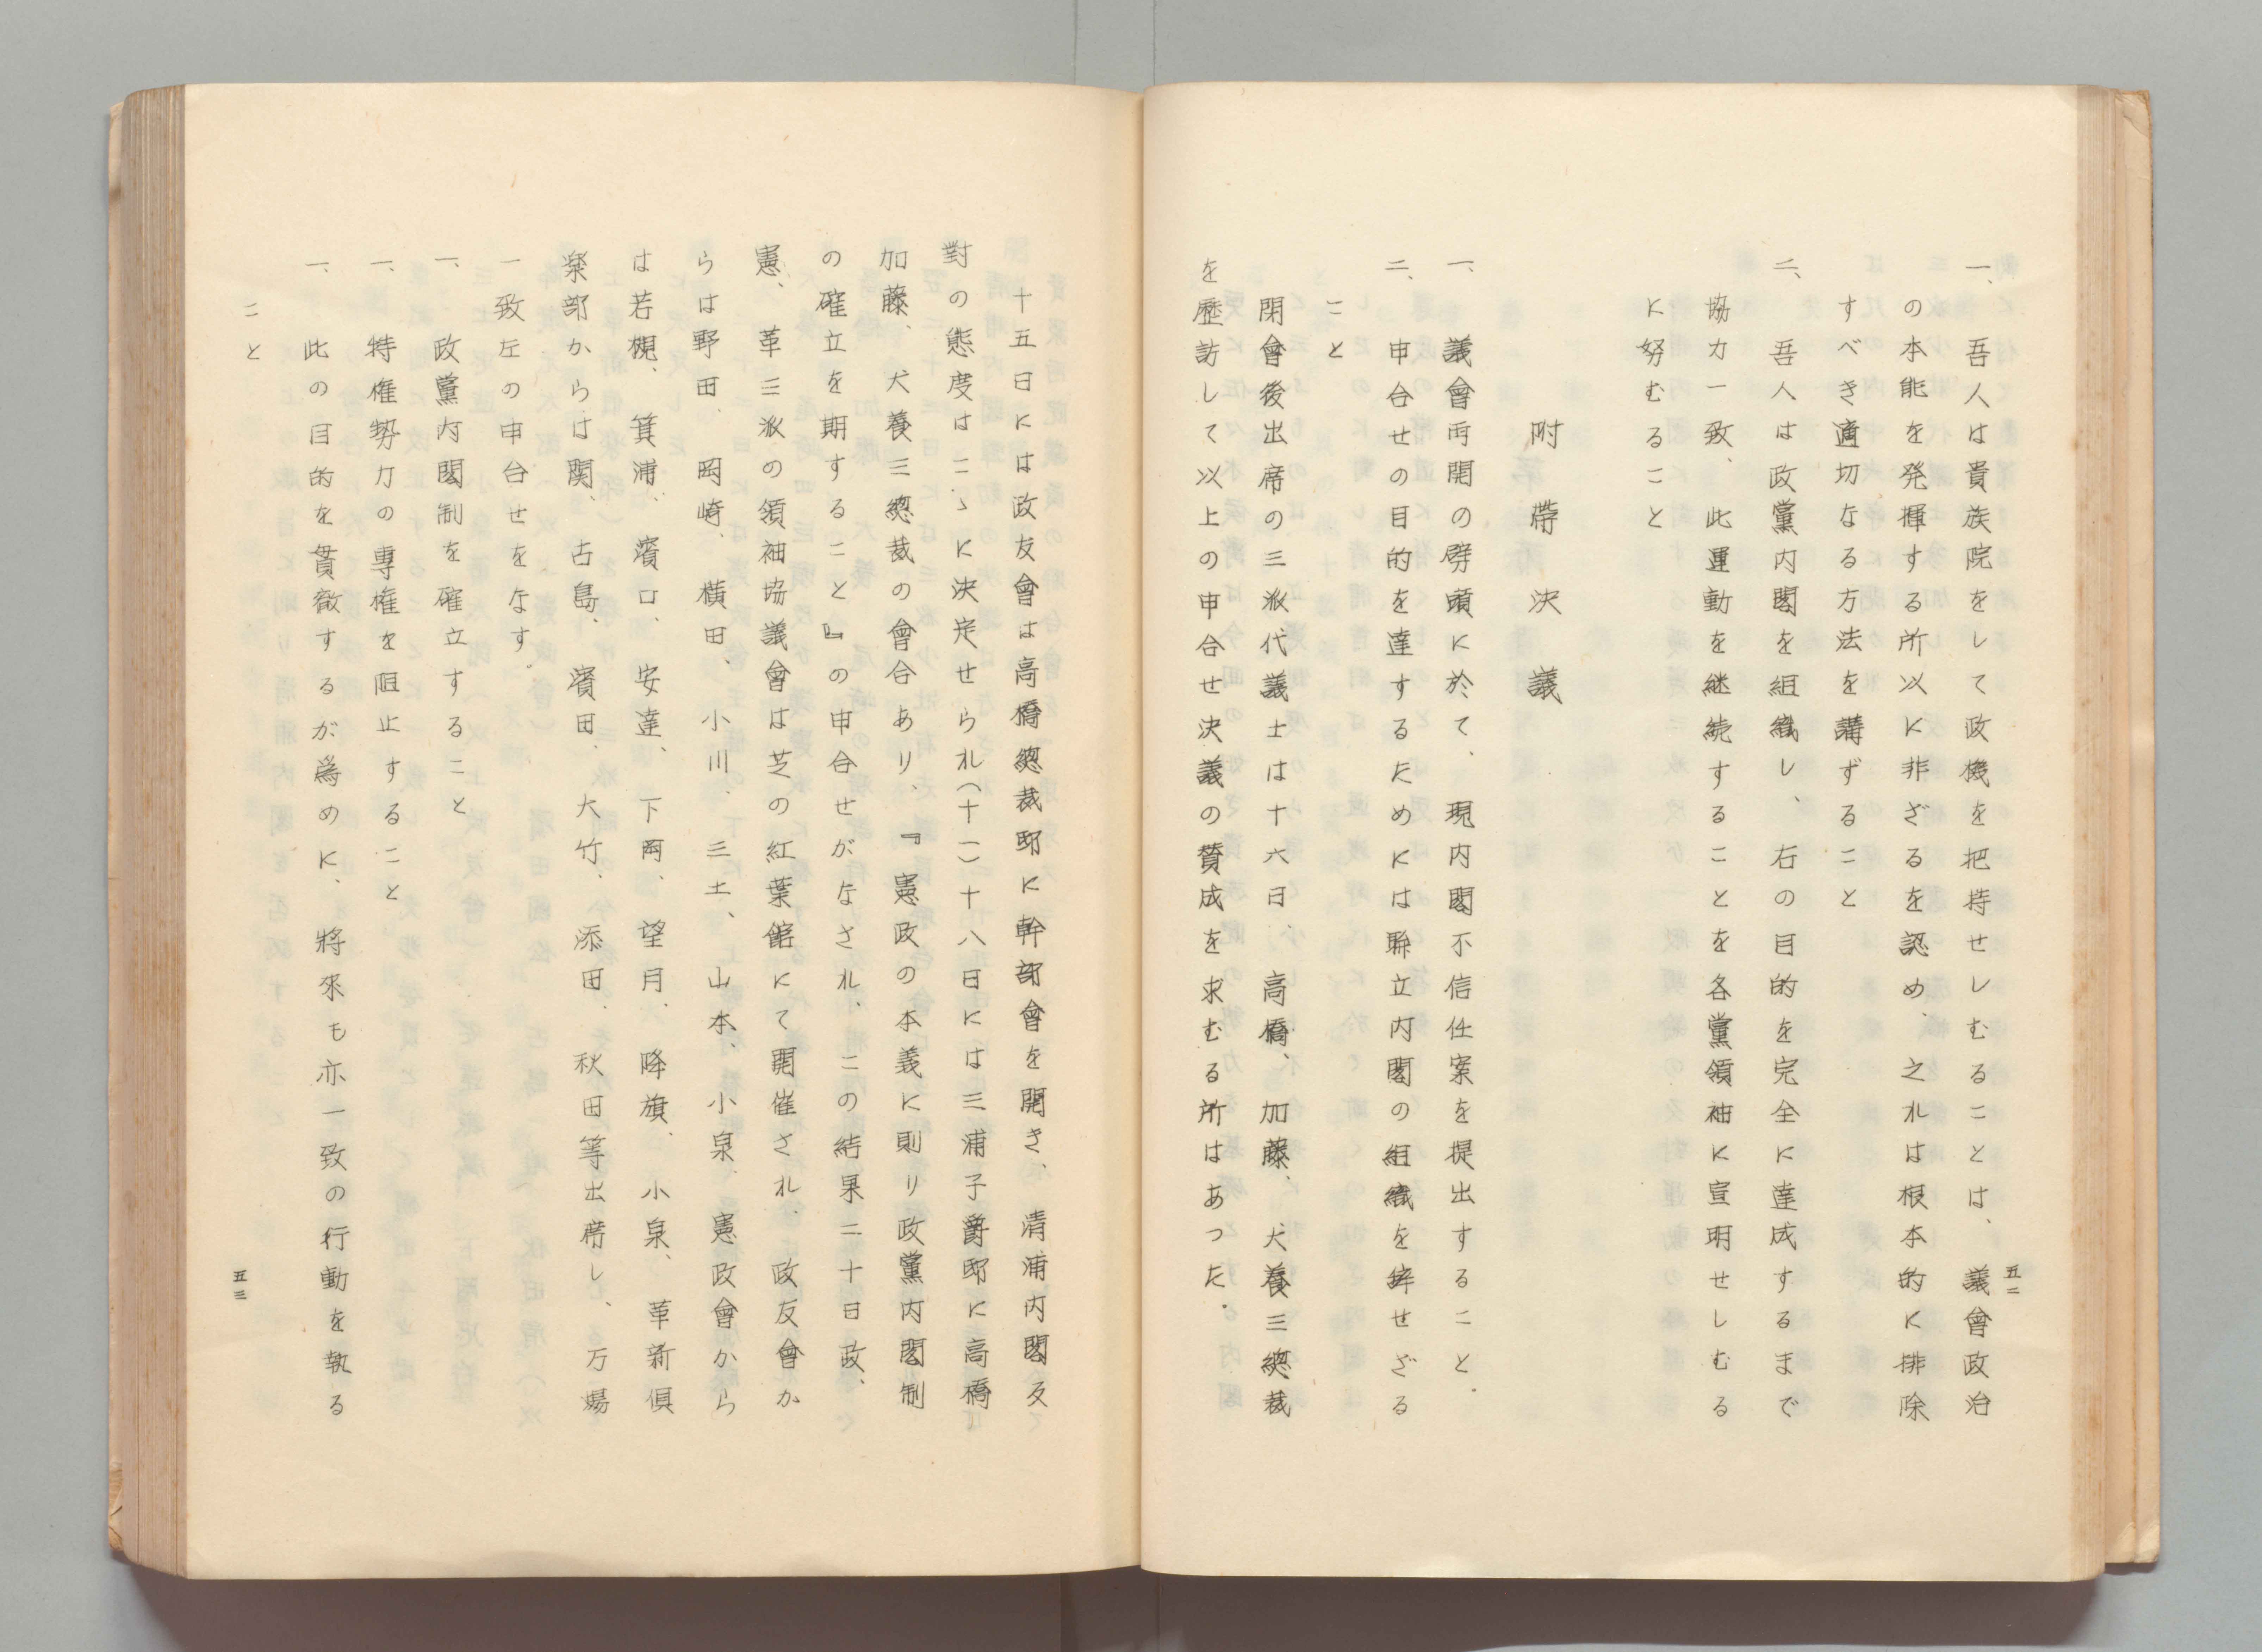 一、吾人は貴族院をして政機を把持せしむることは、議會政治
の本能を発揮する所以に非ざるを認め、之れは根本的に排除
すべき適切なる方法を講ずること
二、吾人は政黨内閣を組織し、右の目的を完全に達成するまで
協力一致、此運動を継続することを各黨領袖に宣明せしむる
に努むること
附帶決議
一、議會再開の劈頭に於て、現内閣不信任案を提出すること。
二、申合せの目的を達するためには聯立内閣の組織を辞せざる
こと
閉會後出席の三派代議士は十六日、高橋、加藤、犬養三總裁
を歴訪して以上の申合せ決議の賛成を求むる所はあった。
五二
十五日には政友會は高橋總裁邸に幹部會を開き、清浦内閣反
對の態度はこゝに決定せられ(十一)十八日には三浦子爵邸に高橋
加藤、犬養三總裁の會合あり、『憲政の本義に則り政黨内閣制
の確立を期すること』の申合せがなされ、この結果二十日政、
憲、革三派の領袖協議會は芝の紅葉館にて開催され、政友會か
らは野田、岡崎、横田、小川、三土、山本、小泉、憲政會から
は若槻、箕浦、濱口、安達、下岡、望月、降旗、小泉、革新倶
楽部からは関、古島、濱田、大竹、添田、秋田等出席し、万場
一致左の申合せをなす。
一、政黨内閣制を確立すること
一、特権勢力の專権を阻止すること
一、此の目的を貫徹するが爲めに、將來も亦一致の行動を執る
こと
五三